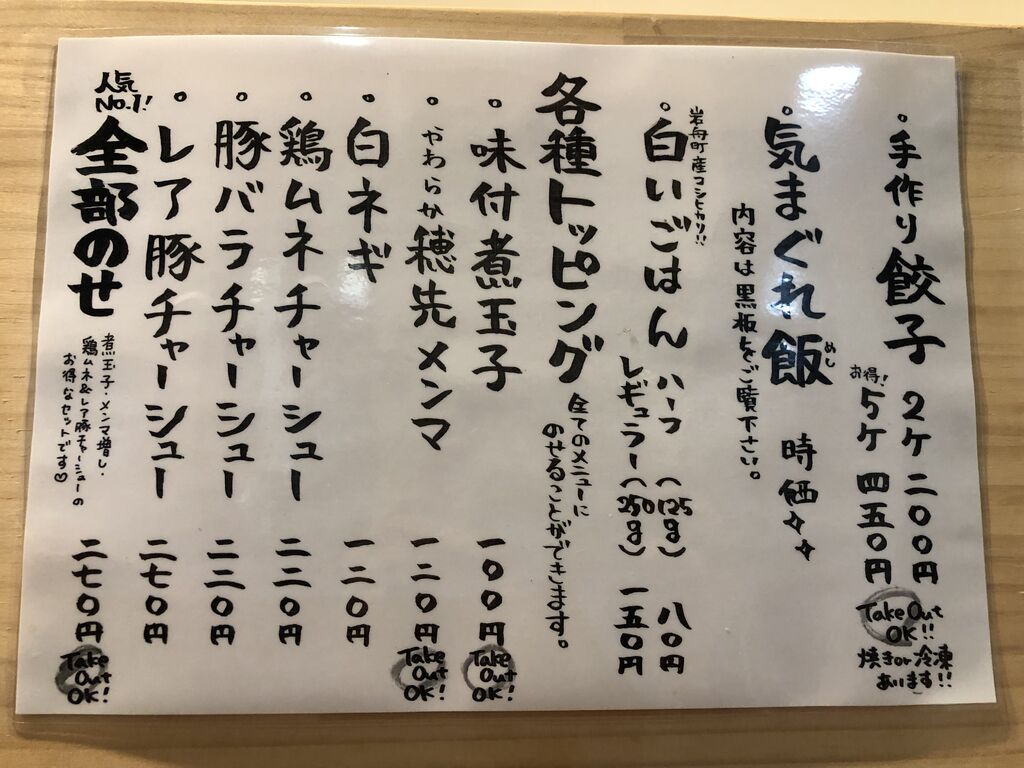 ・手作り餃子 2ケ 二〇〇円
お得! 5ケ 四五〇円
Take Out
OK!!
焼きor冷凍
あります!!
・気まぐれ飯 時価
めし
内容は黒板をご覧下さい。
岩舟町産コシヒカリ!!
・白いごはん ハーフ(125g) 八〇円
レギュラー(250g) 一五〇円
各種トッピング
全てのメニューに
のせることができます。
・味付煮玉子 一〇〇円
Take
Out
OK!
・やわらか穂先メンマ 一二〇円
Take
Out
OK!
・白ネギ 一二〇円
・鶏ムネチャーシュー 二二〇円
・豚バラチャーシュー 二三〇円
・レア豚チャーシュー 二七〇円
人気
No.1!
全部のせ
煮玉子・メンマ増し・
鶏ムネ&レア豚チャーシューの
お得なセットです♡
二七〇円
Take
Out
OK!